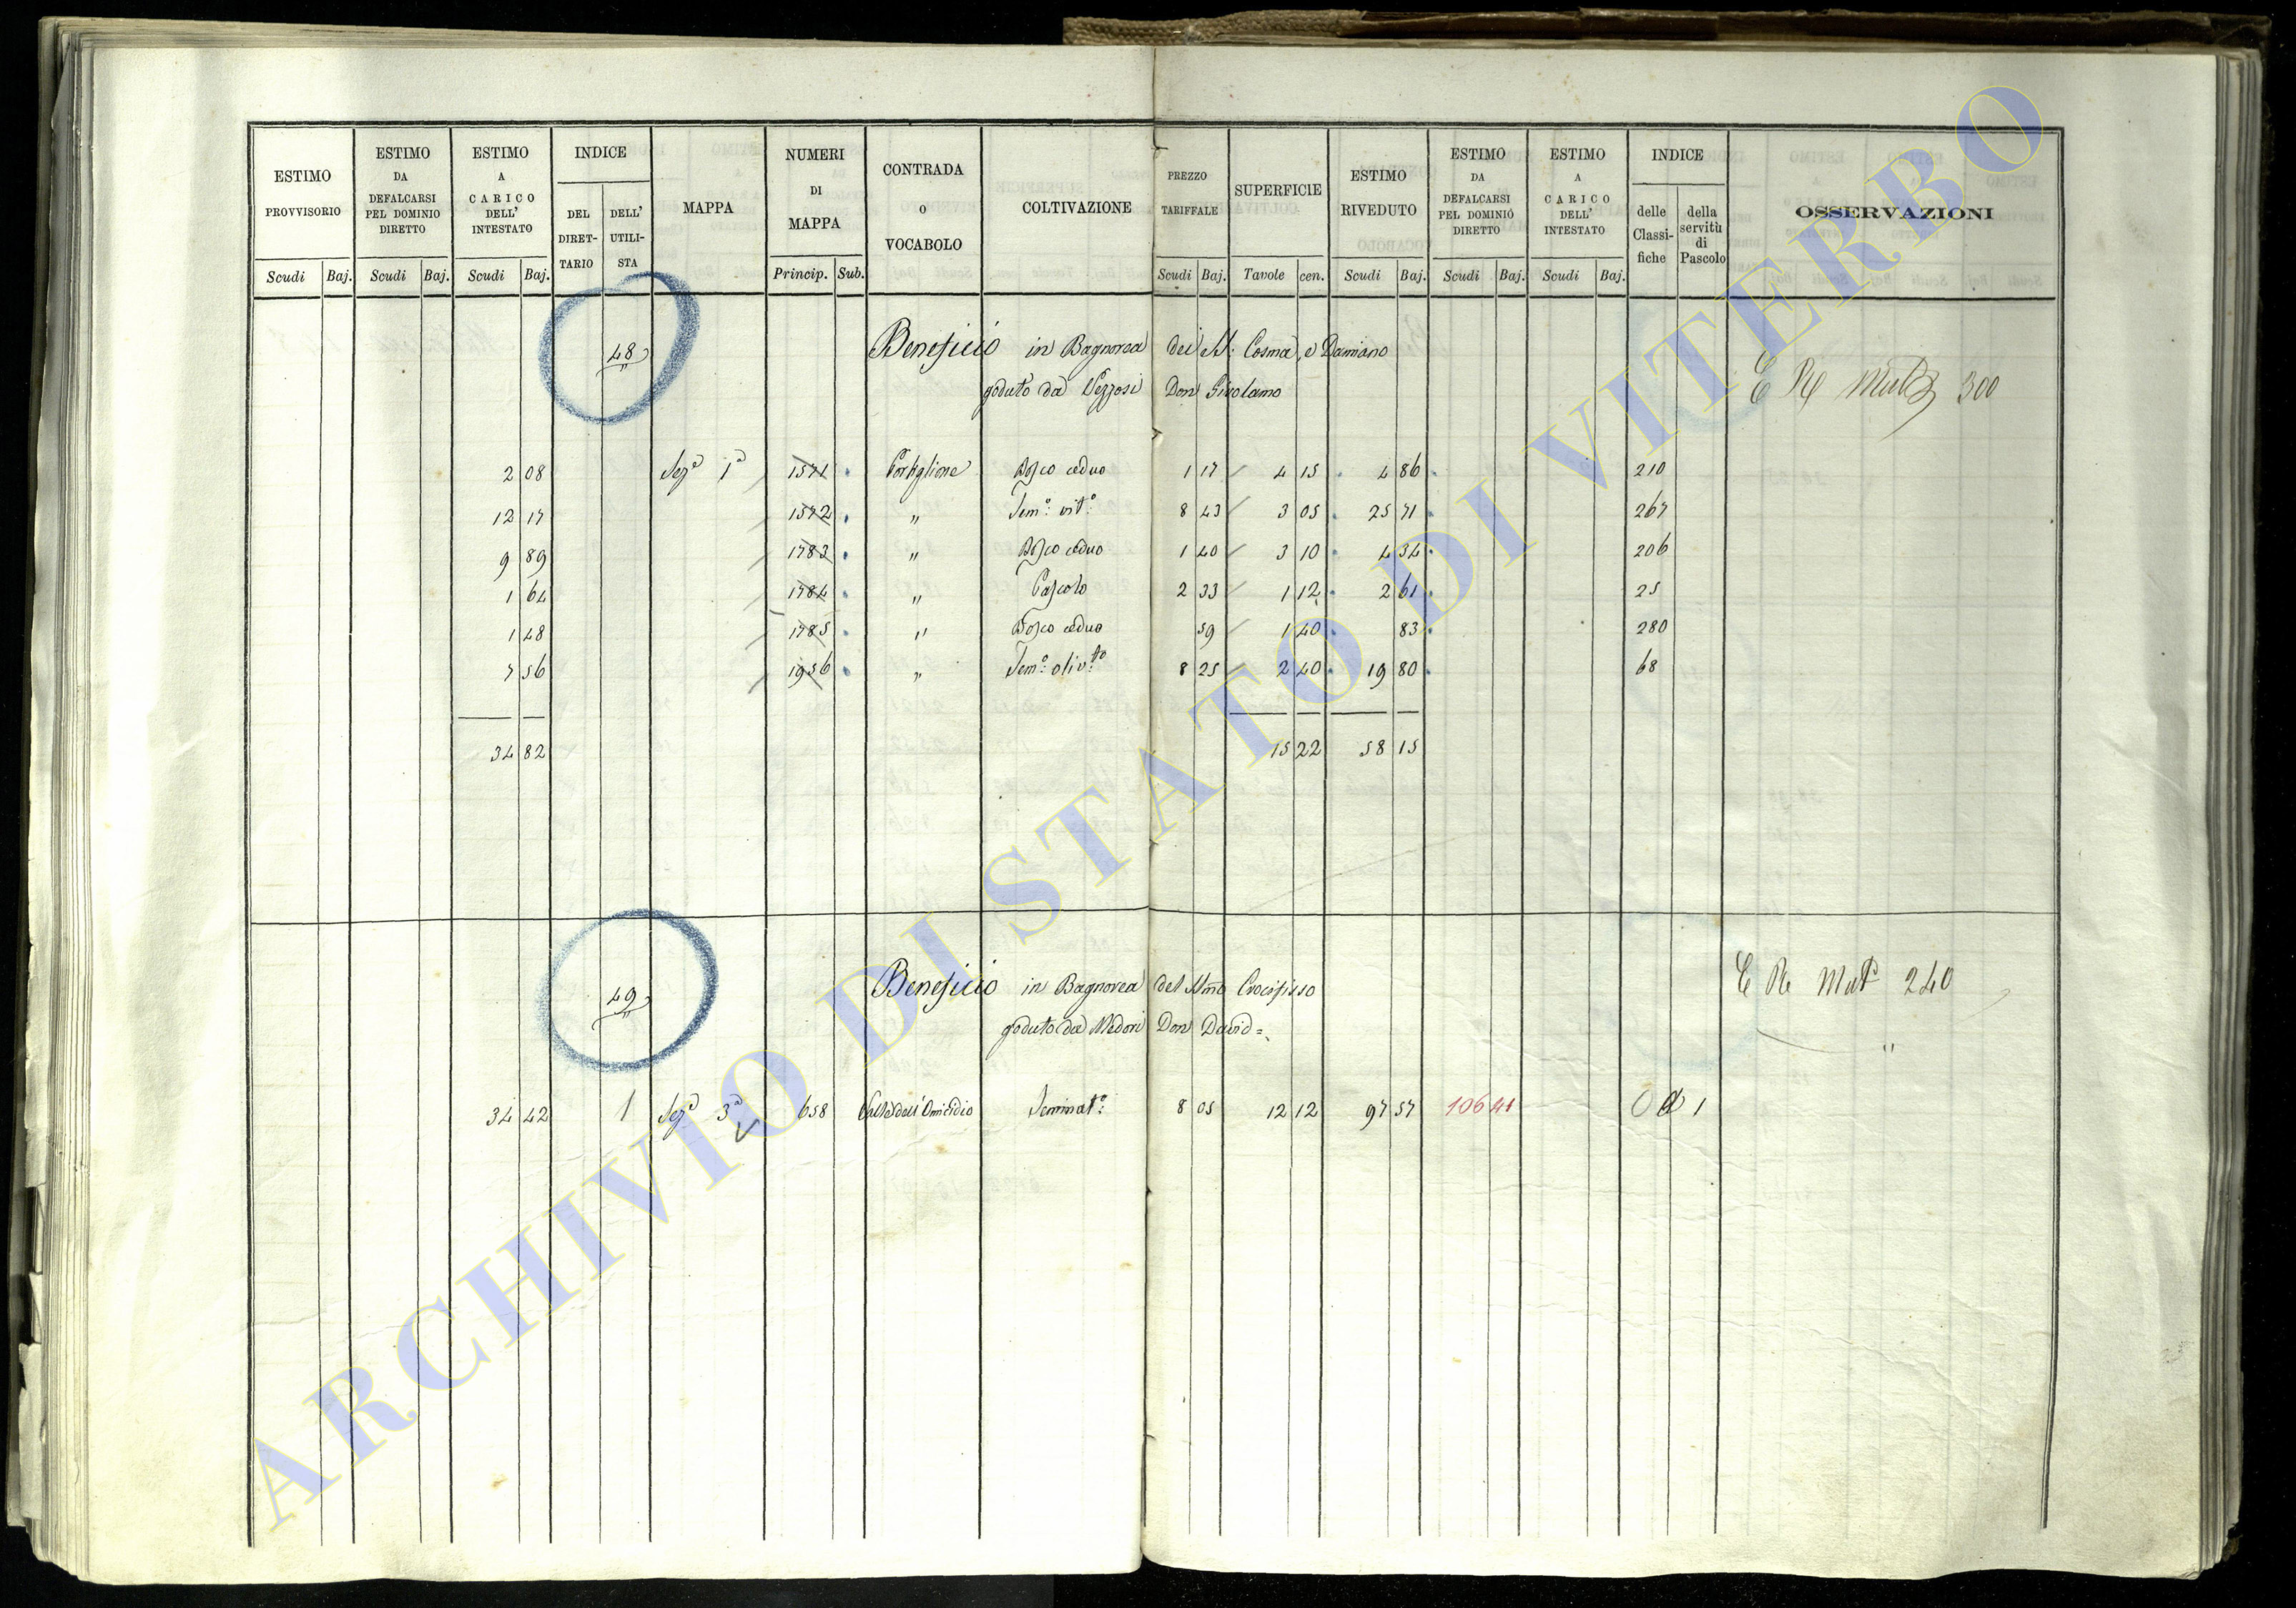 ESTIMO PROVVISORIO Scudi Baj.
ESTIMO DA DEFALCARSI PEL DOMINIO DIRETTO Scudi Baj.
ESTIMO A CARICO DELL' INTESTATO Scudi Baj.
INDICE DEL DIRET-TARIO DELL' UTILI-STA
MAPPA
NUMERI DI MAPPA Princip. Sub.
CONTRADA O VOCABOLO
COLTIVAZIONE
PREZZO TARIFFALE Scudi Baj.
SUPERFICIE Tavole cen.
ESTIMO RIVEDUTO Scudi Baj.
ESTIMO DA DEFALCARSI PEL DOMINIO DIRETTO Scudi Baj.
ESTIMO A CARICO DELL' INTESTATO Scudi Baj.
INDICE delle Classi-fiche della servitù di Pascolo
OSSERVAZIONI
48 Beneficio in Bagnorea dei SS. Cosma, e Damiano
goduto da Vezzosi Don Girolamo 300
2 08 Sezª 1ª 1571 Bosco ceduo 1 17 4 15 4 86 210
12 17 1572 " Semº vitº 8 43 3 05 25 71 267
9 89 1783 " Bosco ceduo 1 40 3 10 4 34 206
1 64 1784 " Pascolo 2 33 1 12 2 61 25
1 48 1785 " Bosco ceduo 59 1 40 83 280
7 56 1956 " Semº olivto 8 25 2 40 19 80 68
34 82 15 22 58 15
49 Beneficio in Bagnorea del SSmo Crocifisso
goduto da Medori Don David= 240
34 42 1 Sezª 3ª 658 Valle dell'Omicidio Seminatº 8 05 12 12 97 57 106 41 1
ARCHIVIO DI STATO DI VITERBO